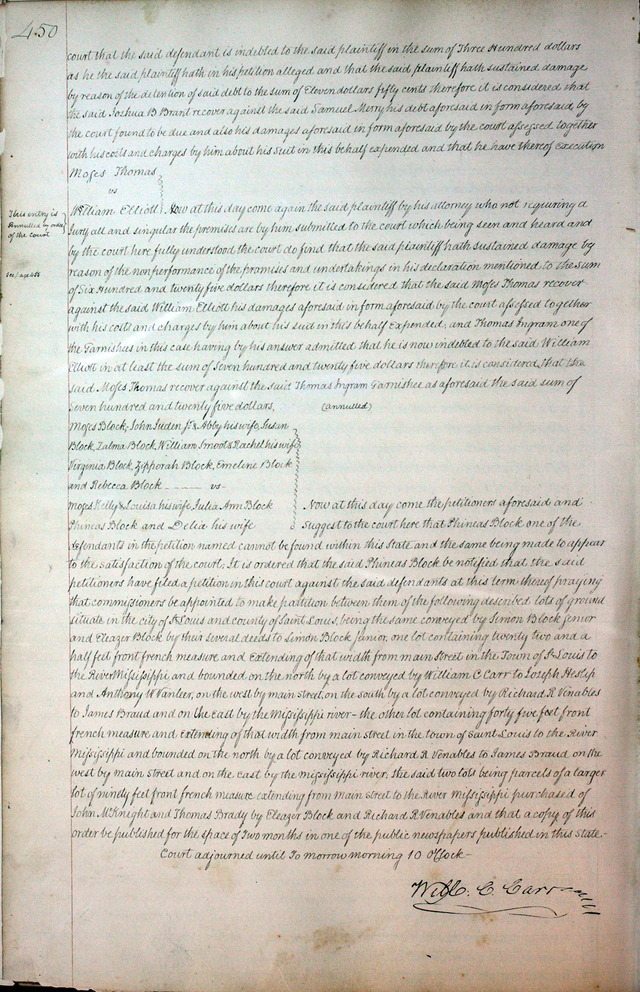 450
court that the said defendant is indebted to the said plaintiff in the sum of Three Hundred dollars
as he the said plaintiff hath in his petition alleged and that the said plaintiff hath sustained damage
by reason of the detention of said debt to the sum of Eleven dollars fifty cents therefore it is considered that
the said Joshua B Brant recover against the said Samuel Merry his debt aforesaid in form aforesaid by
the court found to be due and also his damages aforesaid in form aforesaid by the court assessed together
with his costs and charges by him about his suit in this behalf expended and that he have thereof Execution
Moses Thomas
vs
William Elliott Now at this day come again the said plaintiff by his attorney who not requiring a
This entry is
Annulled by order
of the court
Jury all and singular the premises are by him submitted to the court which being seen and heard and
by the court here fully understood the court do find that the said plaintiff hath sustained damage by
See page
reason of the nonperformance of the promises and undertakings in his declaration mentioned to the sum
of Six Hundred and twenty five dollars therefore it is considered that the said Moses Thomas recover
against the said William Elliott his damages aforesaid in form aforesaid by the court assessed together
with his costs and charges by him about his suit in this behalf Expended, and Thomas Ingram one of
the Garnishees in this case having by his answer admitted that he is now indebted to the said William
Elliott in at least the sum of Seven hundred and twenty five dollars therefore it is considered that the
said Moses Thomas recover against the said Thomas Ingram Garnishee as aforesaid the said sum of
Seven hundred and twenty five dollars, (annulled)
Moses Block, John Juden Jr & Abby his wife, Susan
Block, Zalma Block, William Smoot & Rachel his wife
Virginia Block, Zipporah Block, Emeline Block
and Rebecca Block vs
Moses Kelly & Louisa his wife, Julia Ann Block Now at this day come the petitioners aforesaid and
Phineas Block and Delia his wife Suggest to the court here that Phineas Block one of the
defendants in the petition named cannot be found within this State and the same being made to appear
to the satisfaction of the court, It is ordered that the said Phineas Block be notified that the said
petitioners have filed a petition in this court against the said defendants at this term thereof praying
that commissioners be appointed to make partition between them of the following described lots of ground
situate in the city of St Louis and county of Saint Louis, being the same conveyed by Simon Block senior
and Eleazer Block by their several deeds to Simon Block junior, one lot containing twenty two and a
half feet front french measure and Extending of that width from main Street in the Town of St Louis to
the River Mississippi and bounded on the north by a lot conveyed by William C Carr to Joseph Heslep
and Anthony W Vanleer, on the west by main street, on the south by a lot conveyed by Richard R Venables
to James Braud and on the East by the Mississippi river – the other lot containing forty five feet front
french measure and Extending of that width from main street in the town of Saint Louis to the River
Mississippi and bounded on the north by a lot conveyed by Richard R Venables to James Braud on the
west by main street and on the east by the mississippi river, the said two lots being parcels of a larger
lot of ninety feet front french measure extending from Main Street to the River Mississippi purchased of
John McKnight and Thomas Brady by Eleazer Block and Richard R Venables and that a copy of this
order be published for the space of two months in one of the public newspapers published in this State.
Court adjourned until To morrow morning 10 O'Clock
Will. C. Carr